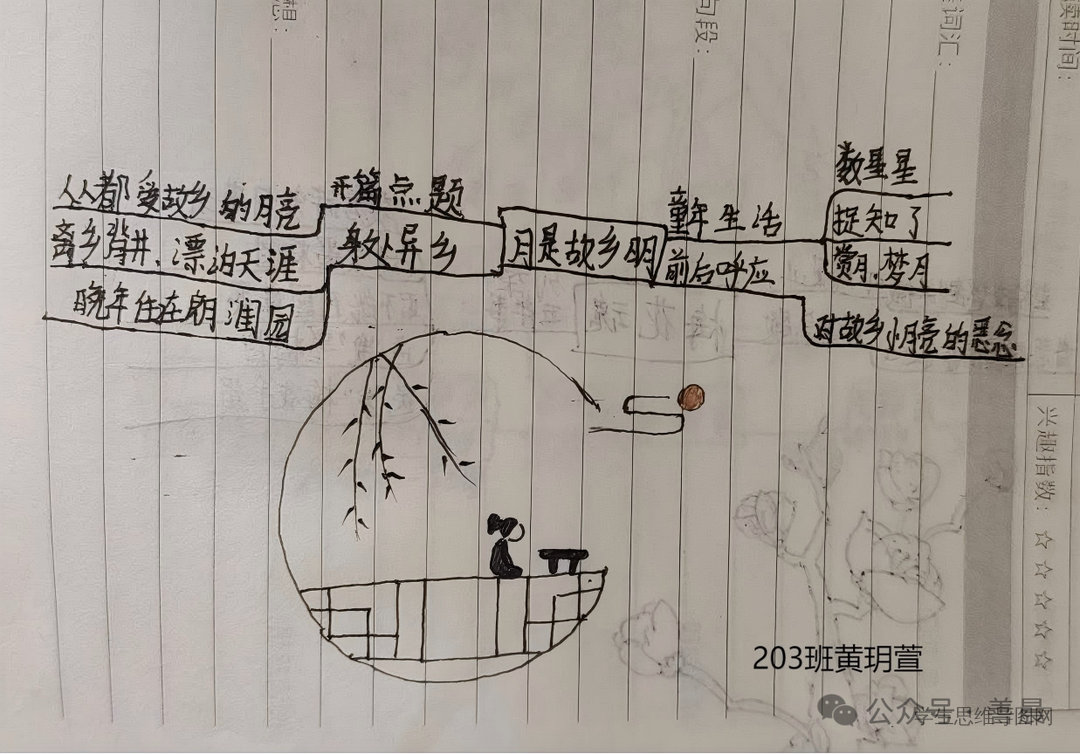 读时间:
词汇:
句段:
想:
人人都爱故乡的月亮
离乡背井、漂泊天涯
晚年住在朗润园
开篇点题
身处异乡
月是故乡明
童年生活
前后呼应
数星星
捉知了
赏月、梦月
对故乡小月亮的思念
兴趣指数: ☆ ☆ ☆ ☆ ☆
203班黄玥萱
公众号
学生思维导图网